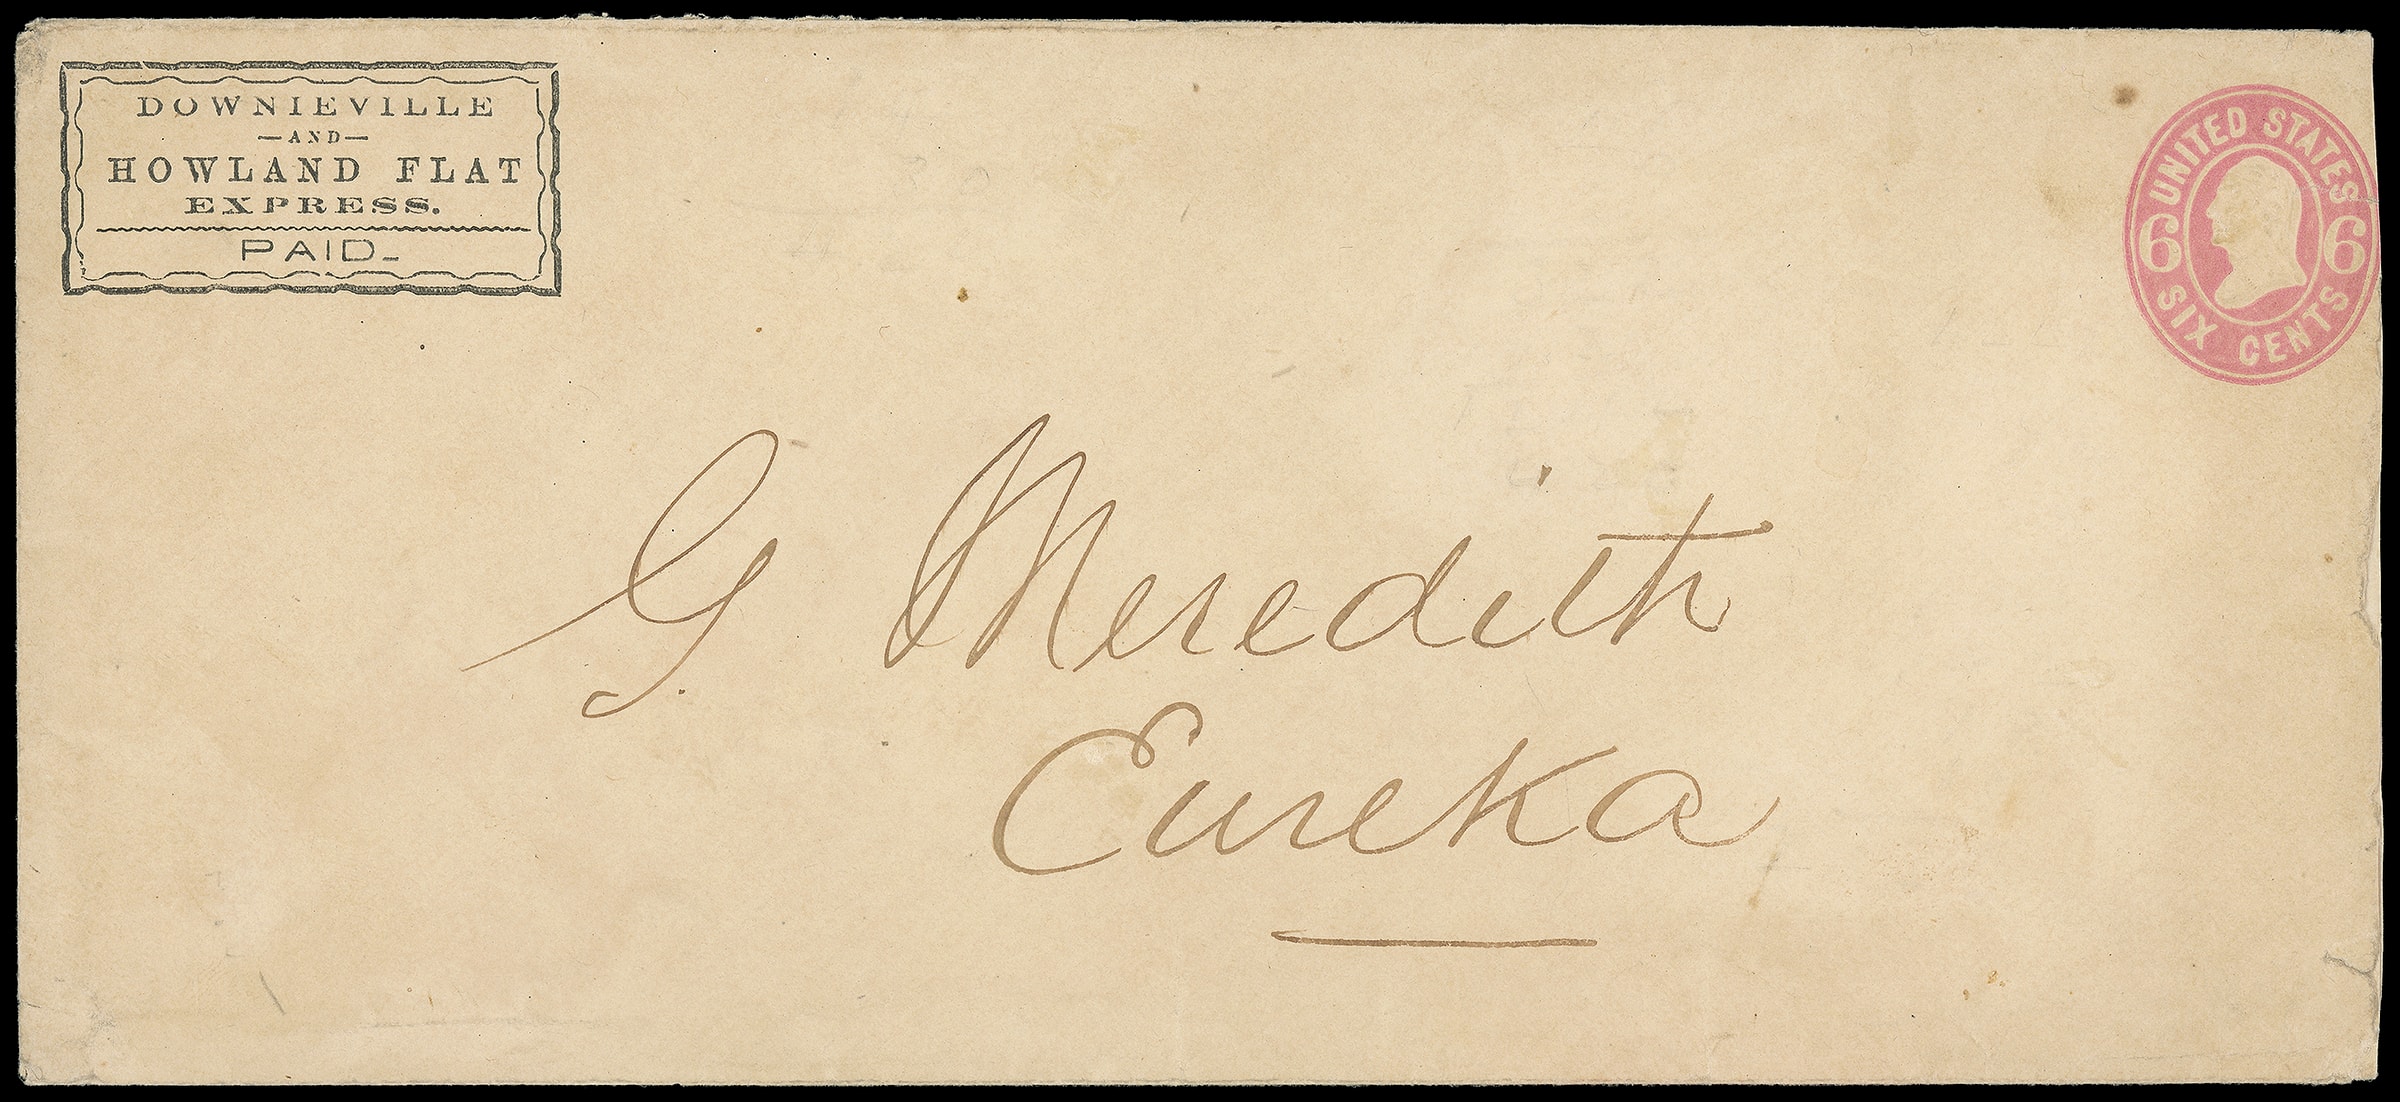 DOWNIEVILLE
—AND—
HOWLAND FLAT
EXPRESS.
PAID_
UNITED STATES
6 6
SIX CENTS
G. Meredith
Eureka